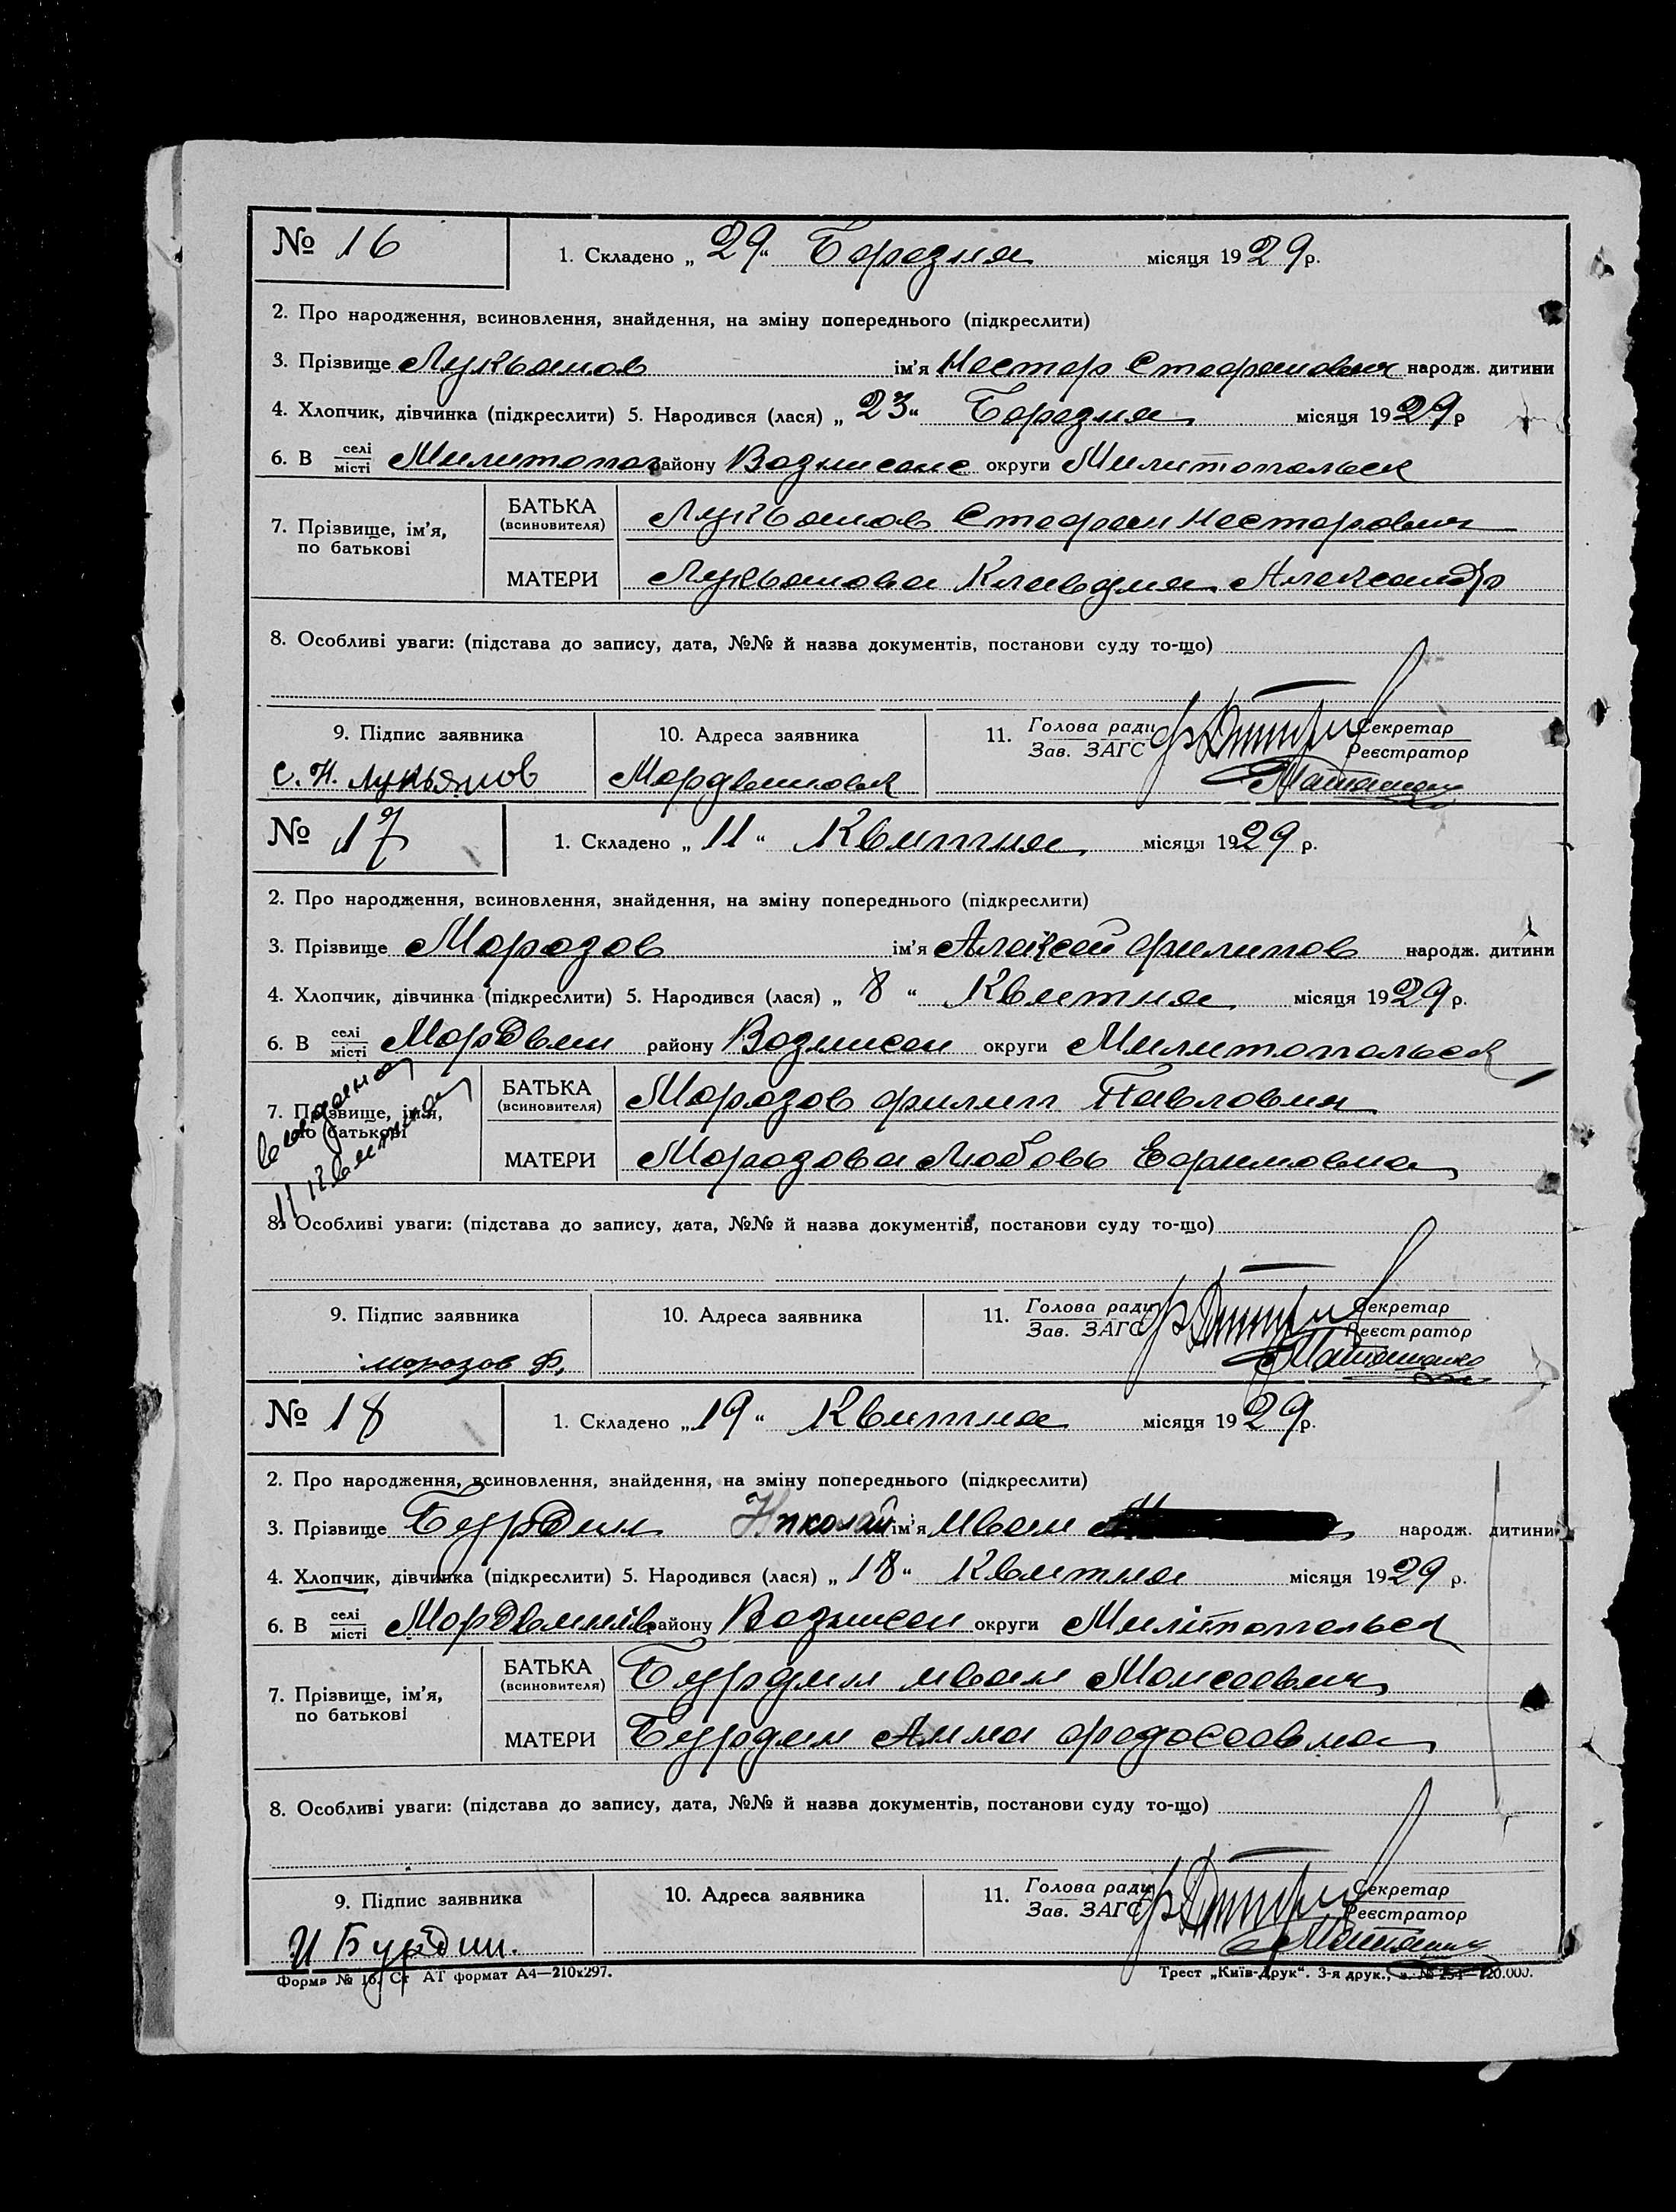 № 16 1. Складено „29“ Березня місяця 1929 р.
2. Про народження, всиновлення, знайдення, на зміну попереднього (підкреслити)
3. Прізвище Лукьянов ім’я Нестер Стефанович народж. дитини
4. Хлопчик, дівчинка (підкреслити) 5. Народився (лася) „23“ Березня місяця 1929 р
6. В селі місті Милитопол району Вознисенс округи Милитопольск
7. Прізвище, ім’я, по батькові БАТЬКА (всиновителя) Лукьянов Стефан Нестерович
МАТЕРИ Лукьянова Клавдия Александр
8. Особливі уваги: (підстава до запису, дата, №№ й назва документів, постанови суду то-що)
9. Підпис заявника 10. Адреса заявника 11. Голова ради Зав. ЗАГС Секретар Реєстратор
С. Н. Лукьянов Мордвиновк
№ 17 1. Складено „11“ Квитня місяця 1929 р.
2. Про народження, всиновлення, знайдення, на зміну попереднього (підкреслити)
3. Прізвище Морозов ім’я Алексей Филипов народж. дитини
4. Хлопчик, дівчинка (підкреслити) 5. Народився (лася) „8“ Квитня місяця 1929 р.
6. В селі місті Мордвин району Вознисен округи Милитопольск
7. Прізвище, ім’я, по батькові БАТЬКА (всиновителя) Морозов Филип Павлович
11 Квитня
МАТЕРИ Морозова Любовь Ефимовна
8. Особливі уваги: (підстава до запису, дата, №№ й назва документів, постанови суду то-що)
9. Підпис заявника 10. Адреса заявника 11. Голова ради Зав. ЗАГС Секретар Реєстратор
Морозов Ф.
№ 18 1. Складено „19“ Квитня місяця 1929 р.
2. Про народження, всиновлення, знайдення, на зміну попереднього (підкреслити)
3. Прізвище Бурдин Николай ім’я Иван народж. дитини
4. Хлопчик, дівчинка (підкреслити) 5. Народився (лася) „18“ Квитня місяця 1929 р.
6. В селі місті Мордвинів району Вознисен округи Милітопольск
7. Прізвище, ім’я, по батькові БАТЬКА (всиновителя) Бурдин Иван Моисеевич
МАТЕРИ Бурдин Анна Федосеевна
8. Особливі уваги: (підстава до запису, дата, №№ й назва документів, постанови суду то-що)
9. Підпис заявника 10. Адреса заявника 11. Голова ради Зав. ЗАГС Секретар Реєстратор
И Бурдин.
Форма № 16. Ст АТ формат А4—210х297. Трест „Київ-Друк“. 3-я друк.,